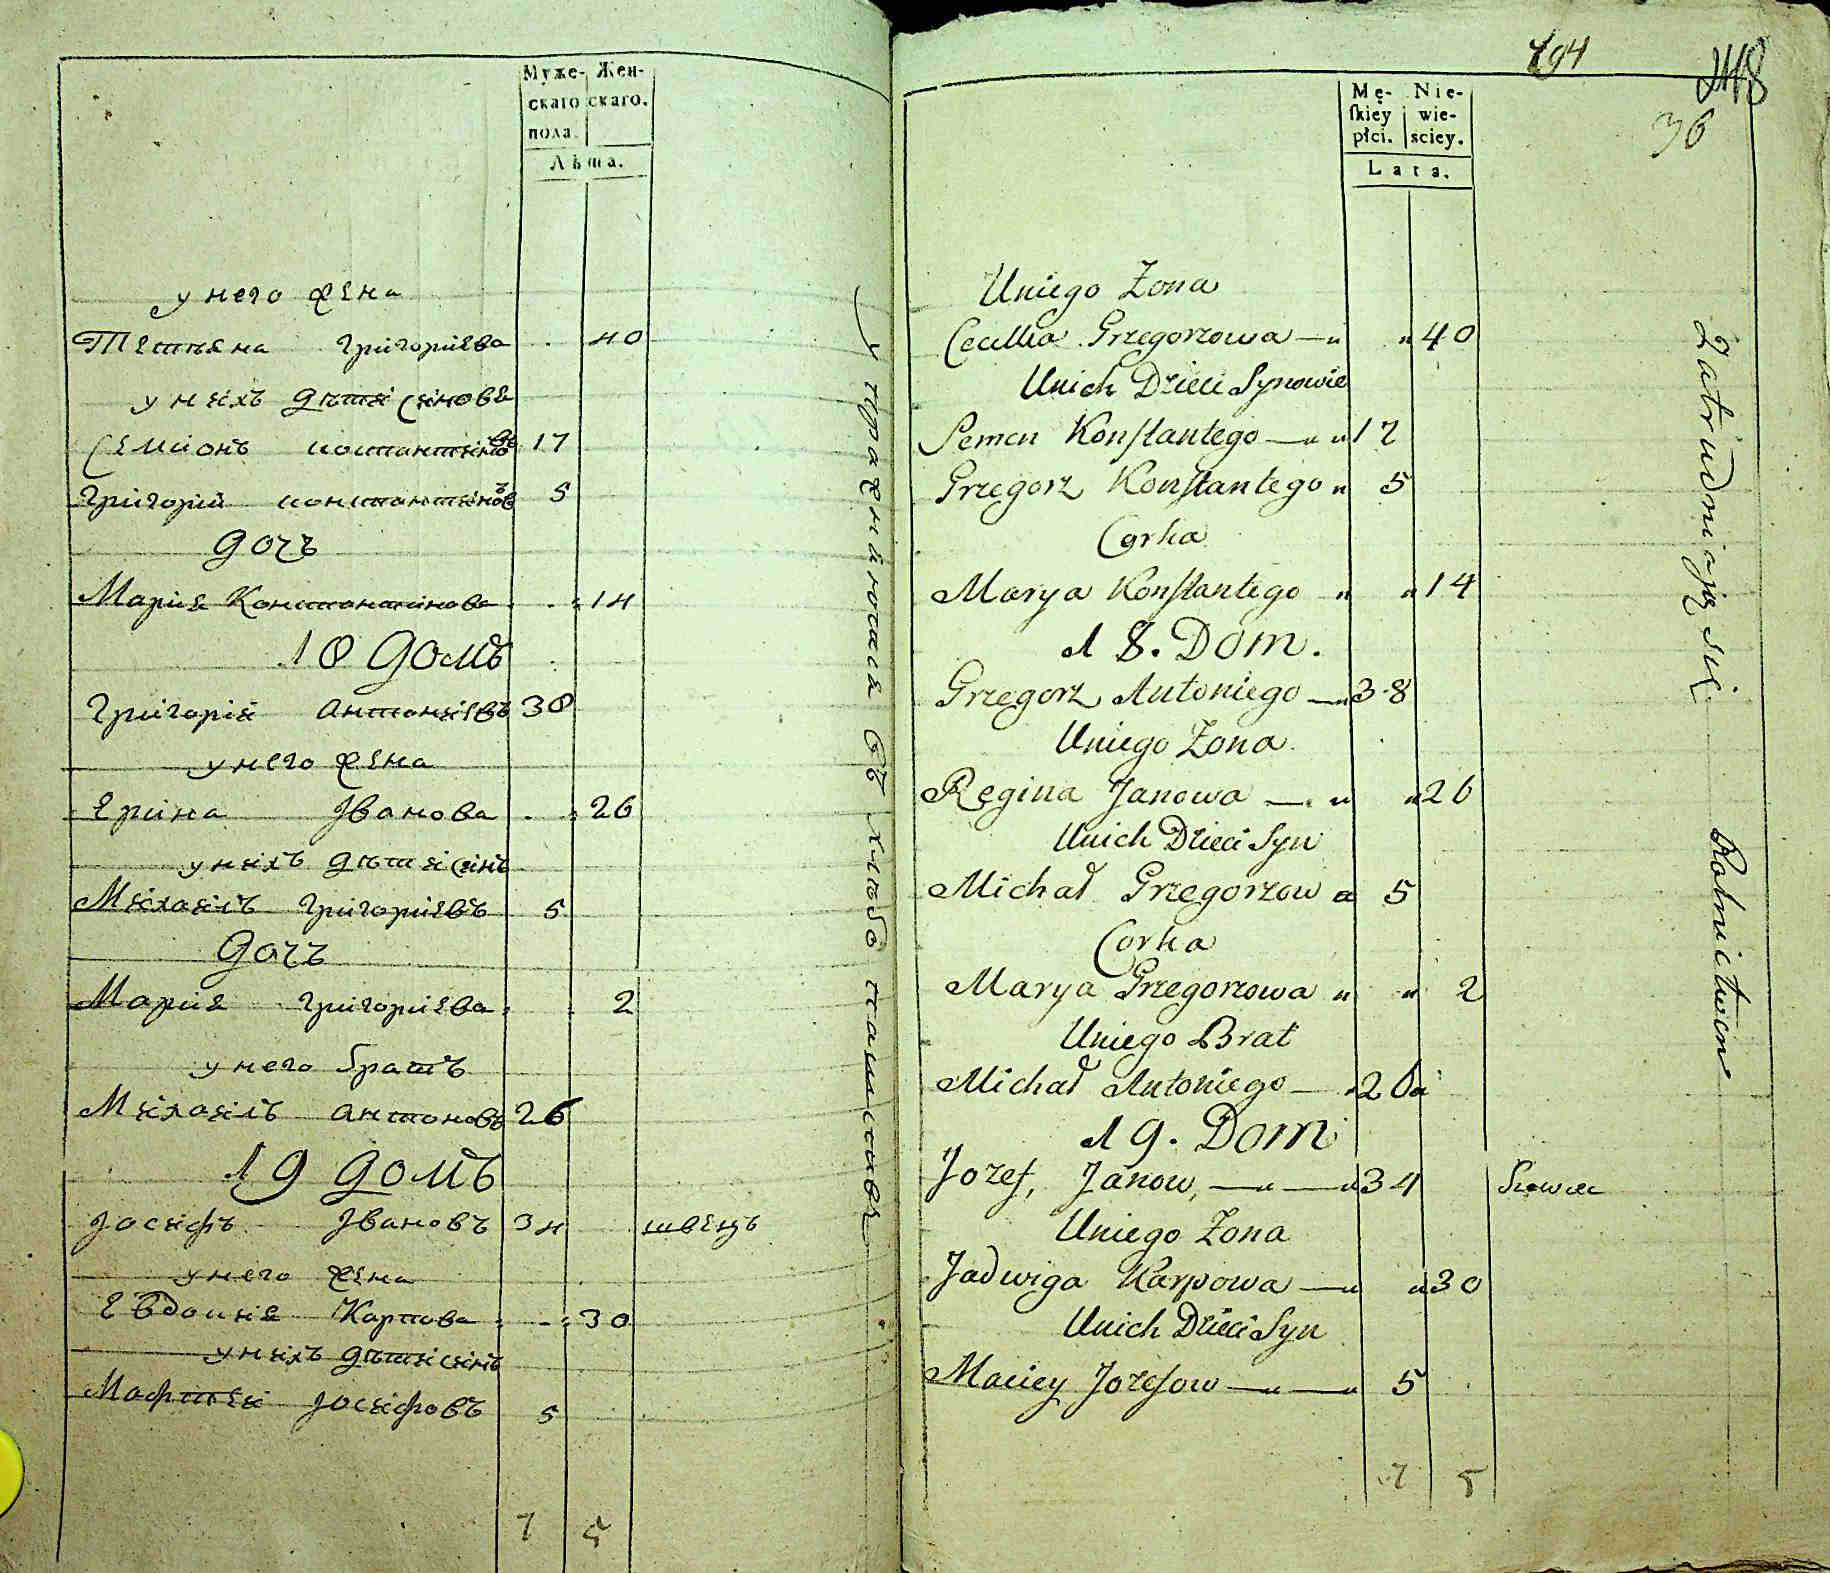 Муже- Жен-
скаго скаго.
пола.
Лѣта.
у него жена
Татьяна Григориева 40
у нихъ дѣти синове
Семионъ костантиновъ 17
Григорий константиновъ 5
дочъ
Мария Константинова 14
18 домъ
Григорій антониевъ 38
у него жена
Ерина Іванова 26
у нихъ дѣти синъ
Михаилъ григориевъ 5
дочъ
Мария григориева 2
у него братъ
Михаилъ антоновъ 26
19 домъ
Іосифъ Івановъ 34 швецъ
у него жена
Евдокия Карпова 30
у нихъ дѣти синъ
Мафтей Іосифовъ 5
7 5
упражнаюца въ хлѣбо пашестве
194
248
36
Mę- Nie-
skiey wie-
płci. sciey.
Lata.
Uniego Zona
Cecilia Grzegorzowa 40
Unich Dzieci Synowie
Semen Konstantego 17
Grzegorz Konstantego 5
Corka
Marya Konstantego 14
18. Dom.
Grzegorz Antoniego 38
Uniego Zona
Regina Janowa 26
Unich Dzieci Syn
Michał Grzegorzow 5
Corka
Marya Grzegorzowa 2
Uniego Brat
Michał Antoniego 26
19. Dom
Jozef, Janow, 34 Szewiec
Uniego Zona
Jadwiga Karpowa 30
Unich Dzieci Syn
Maciey Jozefow 5
7 5
Zatrudniają się Rolnictwem